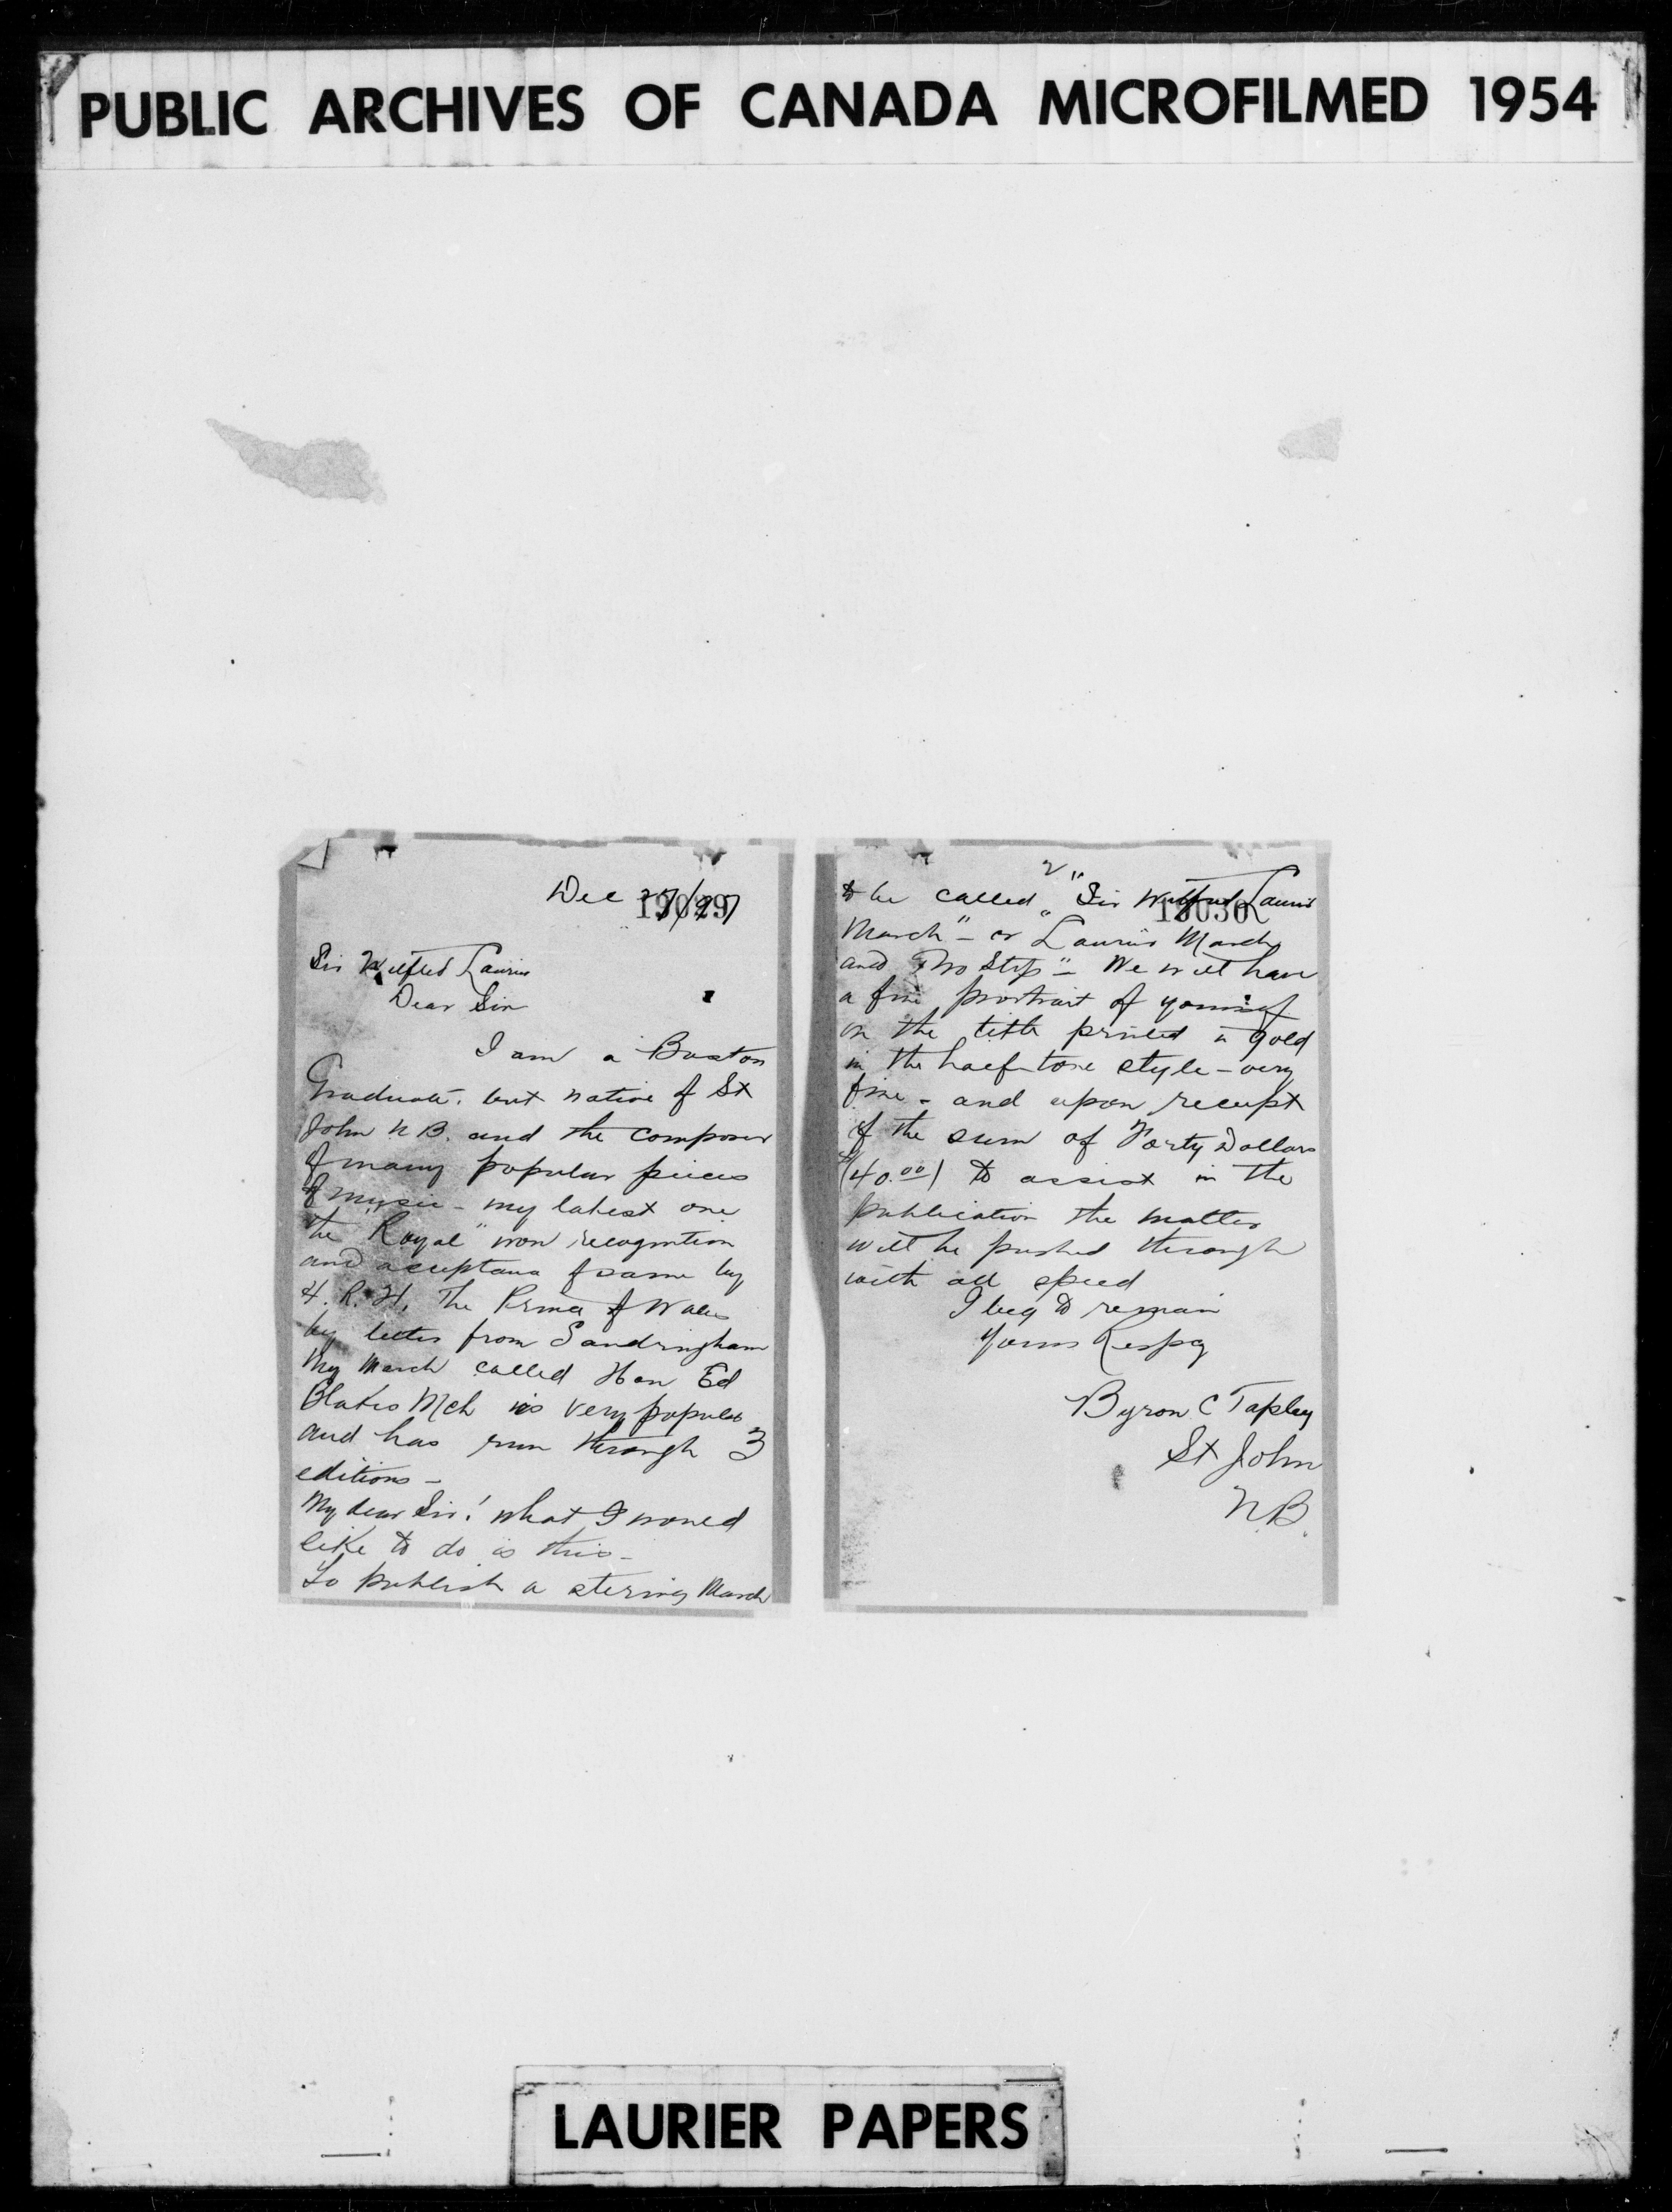 PUBLIC ARCHIVES OF CANADA MICROFILMED 1954
Dec 27/97
19029
Sir Wilfred Laurier
Dear Sir
I am a Boston
Graduate, but native of St
John N B. and the composer
of many popular pieces
of music - my latest one
the "Royal" won recognition
and acceptance of same by
H. R. H. The Prince of Wales
by letter from Sandringham
My March called Hon Ed
Blakes Mch is very popular
and has run through 3
editions -
My dear Sir! what I would
like to do is this -
To publish a stering March
2
to be called "Sir Wilfred Laurier
19030
March" - or "Laurier March
and Two Step" - We will have
a fine portrait of yourself
on the title printed in gold
in the half-tone style - very
fine - and upon receipt
of the sum of Forty Dollars
($40.00) to assist in the
publication the matter
will be pushed through
with all speed
I beg to remain
Yours Respy
Byron C Tapley
St John
N.B.
LAURIER PAPERS